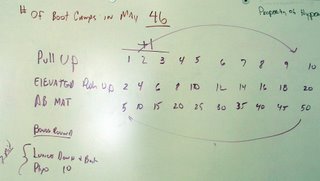 # OF Boot Camps in MAY 46
Property of Hyper
+1
Pull Up 1 2 3 4 5 6 7 8 9 10
ElEVATED Push Up 2 4 6 8 10 12 14 16 18 20
AB MAT 5 10 15 20 25 30 35 40 45 50
Bonus Round
Lunges Down & Back
Plyo 10